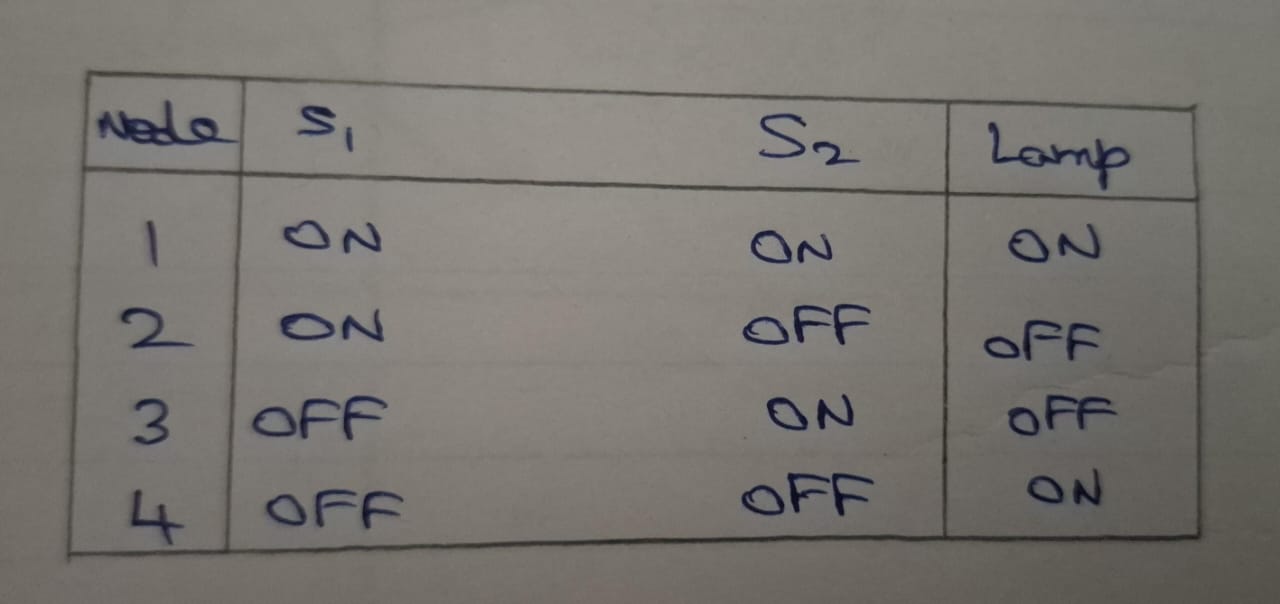 Node S1 S2 Lamp
1 ON ON ON
2 ON OFF OFF
3 OFF ON OFF
4 OFF OFF ON